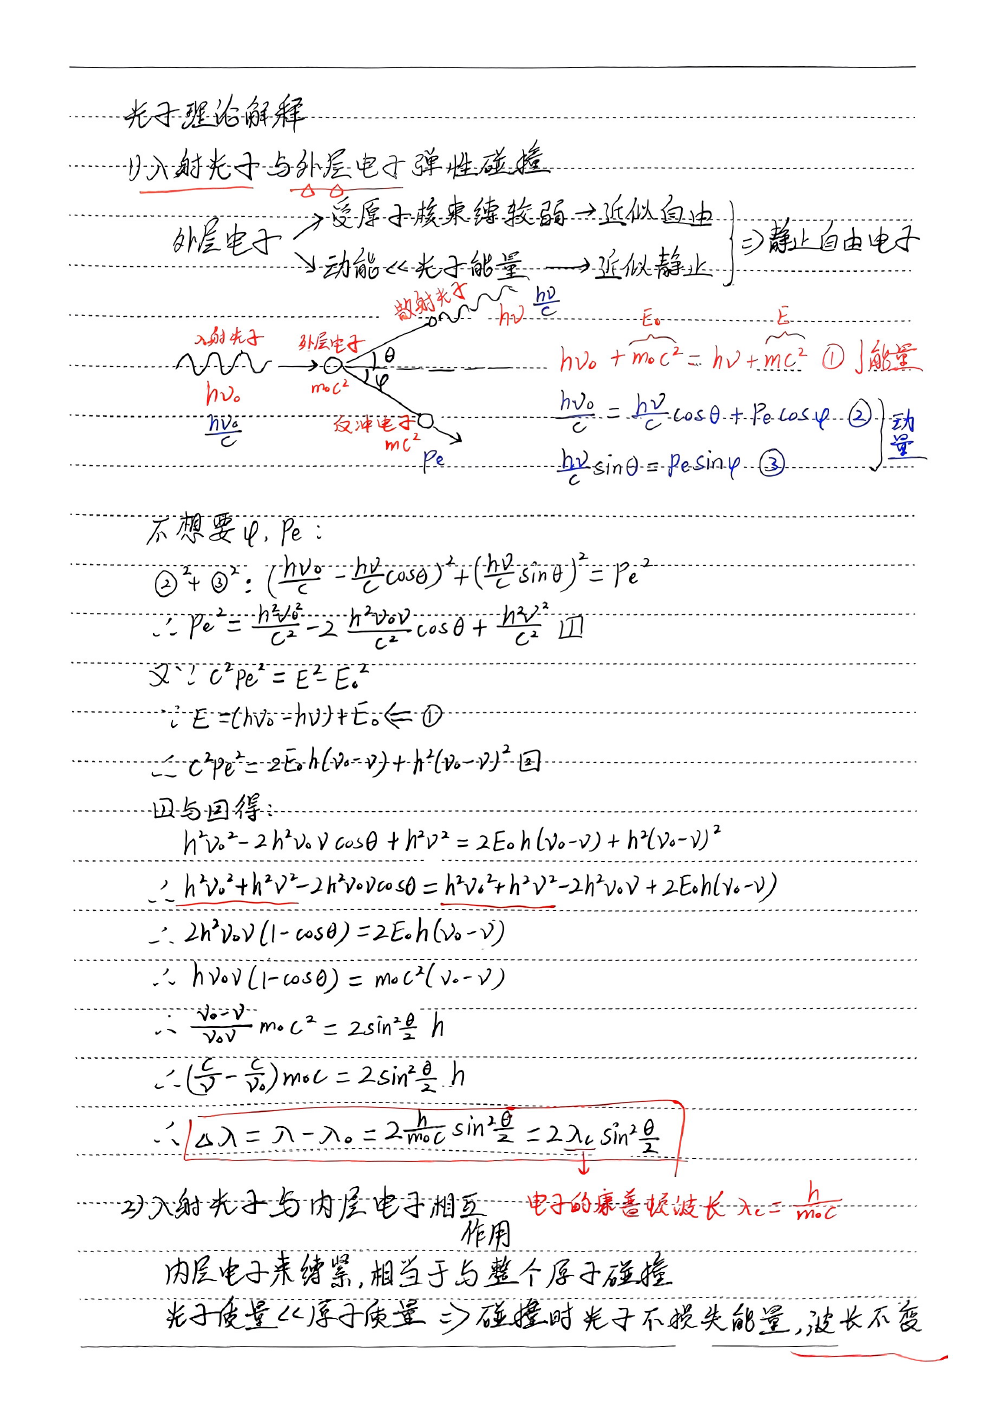 光子理论解释
1)入射光子与外层电子弹性碰撞
外层电子 ↗受原子核束缚较弱→近似自由
↘动能<<光子能量→近似静止 } ⇒静止自由电子
散射光子 hν hν/c
入射光子 外层电子 θ φ
hν₀ m₀c²
hν₀/c 反冲电子 mc²
Pe
E₀ E
hν₀ + m₀c² = hν + mc² ① }能量
hν₀/c = hν/c cosθ + Pe cosφ ②
hν/c sinθ = Pe sinφ ③ }动量
不想要φ, Pe:
②²+③²: (hν₀/c - hν/c cosθ)² + (hν/c sinθ)² = Pe²
∴ Pe² = h²ν₀²/c² - 2 h²ν₀ν/c² cosθ + h²ν²/c² [1]
又∵ c²Pe² = E² - E₀²
∵ E = (hν₀ - hν) + E₀ ⇐ ①
∴ c²Pe² = 2E₀h(ν₀-ν) + h²(ν₀-ν)² [2]
[1]与[2]得:
h²ν₀² - 2h²ν₀ν cosθ + h²ν² = 2E₀h(ν₀-ν) + h²(ν₀-ν)²
∴ h²ν₀² + h²ν² - 2h²ν₀νcosθ = h²ν₀² + h²ν² - 2h²ν₀ν + 2E₀h(ν₀-ν)
∴ 2h²ν₀ν(1-cosθ) = 2E₀h(ν₀-ν)
∴ hν₀ν(1-cosθ) = m₀c²(ν₀-ν)
∴ (ν₀-ν)/(ν₀ν) m₀c² = 2sin²θ/2 h
∴ (c/ν - c/ν₀)m₀c = 2sin²θ/2 h
∴ Δλ = λ - λ₀ = 2 h/(m₀c) sin²θ/2 = 2λc sin²θ/2
2)入射光子与内层电子相互作用
电子的康普顿波长 λc = h/(m₀c)
内层电子束缚紧,相当于与整个原子碰撞
光子质量<<原子质量 ⇒ 碰撞时光子不损失能量,波长不变